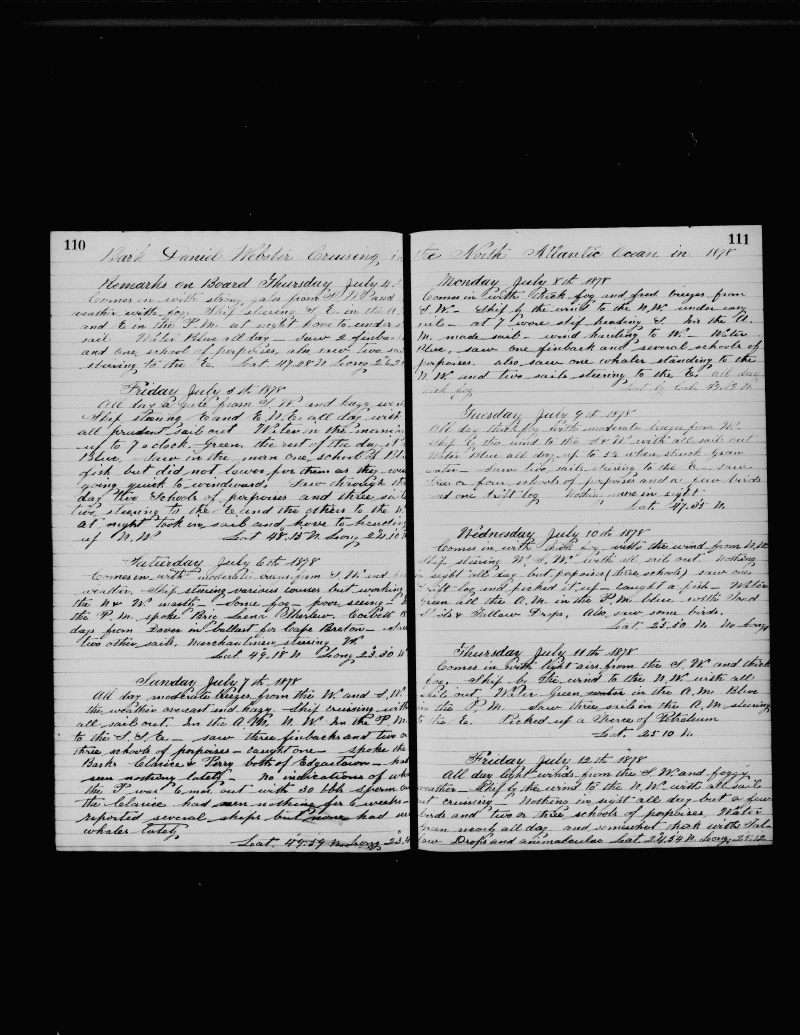 110
Bark Daniel Webster Cruising in
Remarks on Board Thursday July 4
Comes in with strong gales from S W and
weather with fog. Ship steering S. E. in the A.
and E in the P.M. at night hove to under
sail Water Blue all day - Saw 2 finbacks
and one school of porpoises, also saw two sail
steering to the E. Lat 47.08 N Long
Friday July 5th 1878
All day a gale from S. W and hazy
Ship steering E and E.N.E. all day with
all prudent sail out Water in the morning
up to 7 oclock Green. the rest of the day it
Blue. Saw in the morn one school of
fish but did not lower for them as they were
going quick to windward. Saw through the
day two Schools of porpoises and three sail
two steering to the E and the others to the
at night took in sail and hove to heading
up N.W Lat 48.15 N. Long 24.10
Saturday July 6th 1878
Comes in with moderate from S. W and
weather. Ship steering various courses but working
the N & W - Some fog - poor seeing -
the P.M. spoke Brig
days from Dover in ballast for Cape Breton -
two other sails, Merchantmen steering W.
Lat 49.18 N Long 23.30 W
Sunday July 7th 1878
All day moderate breezes from the W. and S.W.
the weather overcast and hazy. Ship cruising with
all sail out. In the A.M. N. W. In the P.M.
to the S.S.E - saw three finbacks and two or
three schools of porpoises - caught one - spoke the
Barks Clarice & Perry both of Edgartown - had
seen nothing lately - No indications of
the P was 8 mos out with 30 bbls sperm
the Clarice had seen nothing for 6 weeks -
reported several ships but none had seen
whales lately
Lat. 49.59 N. Long 23.4
111
the North Atlantic Ocean in 1878
Monday July 8th 1878
Comes in with thick fog and fresh breezes from
S.W. - Ship by the wind to the N.W. under easy
sail - at 7 wore ship heading S. In the A.
M. made sail - wind hauling to W. - Water
Blue, saw one finback and several schools of
porpoises. also saw one whaler standing to the
N. W and two sails steering to the E. all day
thick fog
Tuesday July 9th 1878
All day thick fog with moderate breezes from W.
Ship by the wind to the S & W with all sail out
Water Blue all day, up to when struck green
water - Saw two sails steering to the E - saw
three or four schools of porpoises and a few birds
and one drift log Nothing more in sight
Lat. 47.35 N.
Wednesday July 10th 1878
Comes in with thick fog with the wind from
Ship steering W. S. W. with all sail out. Nothing
in sight all day but porpoises (three schools) saw one
drift log and picked it up - caught a fish - Water
green all the A.M. in the P.M. blue - with
& Tallow Drops. Also saw some birds.
Lat. N. No Long
Thursday July 11th 1878
Comes in with light airs from the S. W and thick
fog. Ship by the wind to the N.W. with all
sails out. Water Green in the A.M. Blue
in the P.M. Saw three sail in the A.M. steering
to the E. Picked up a Tierce of Petroleum
Lat. 25 10 N.
Friday July 12th 1878
All day light winds from the S.W and foggy
weather - Ship by the wind to the N.W. with all sails
out cruising - Nothing in sight all day but a few
birds and two or three schools of porpoises. Water
green nearly all day and somewhat thick with Tal-
low Drops and animalculae Lat. 24.54 N. Long. 25.12